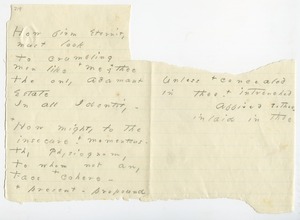 How firm Eternity
must look
To crumbling
men like me, + thee
the only Adamant
Estate
In all Identity -
How mighty to the
insecure + momentous
thy Physiognomy
To whom not any
Face cohere -
+ present - propound
Unless + concealed
in thee + interred
in thee